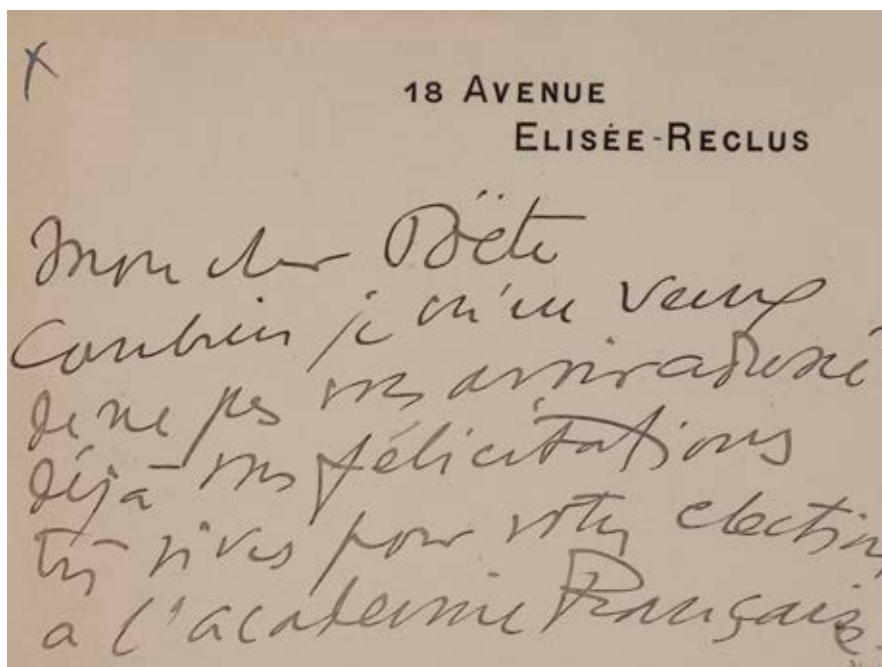 X
18 AVENUE
ELISÉE-RECLUS
Mon cher Poëte
Combien je m'en veux
de ne pas vous avoir adressé
déjà mes félicitations
très vives pour votre election
a l'academie Française